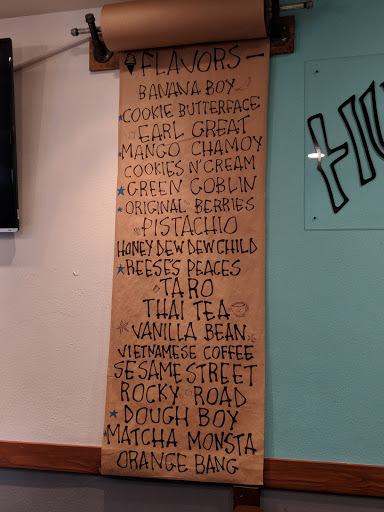 FLAVORS
BANANA BOY
COOKIE BUTTERFACE
EARL GREAT
MANGO CHAMOY
COOKIES N' CREAM
GREEN GOBLIN
ORIGINAL BERRIES
PISTACHIO
HONEY DEW DEW CHILD
REESE'S PEACES
TARO
THAI TEA
VANILLA BEAN
VIETNAMESE COFFEE
SESAME STREET
ROCKY ROAD
DOUGH BOY
MATCHA MONSTA
ORANGE BANG